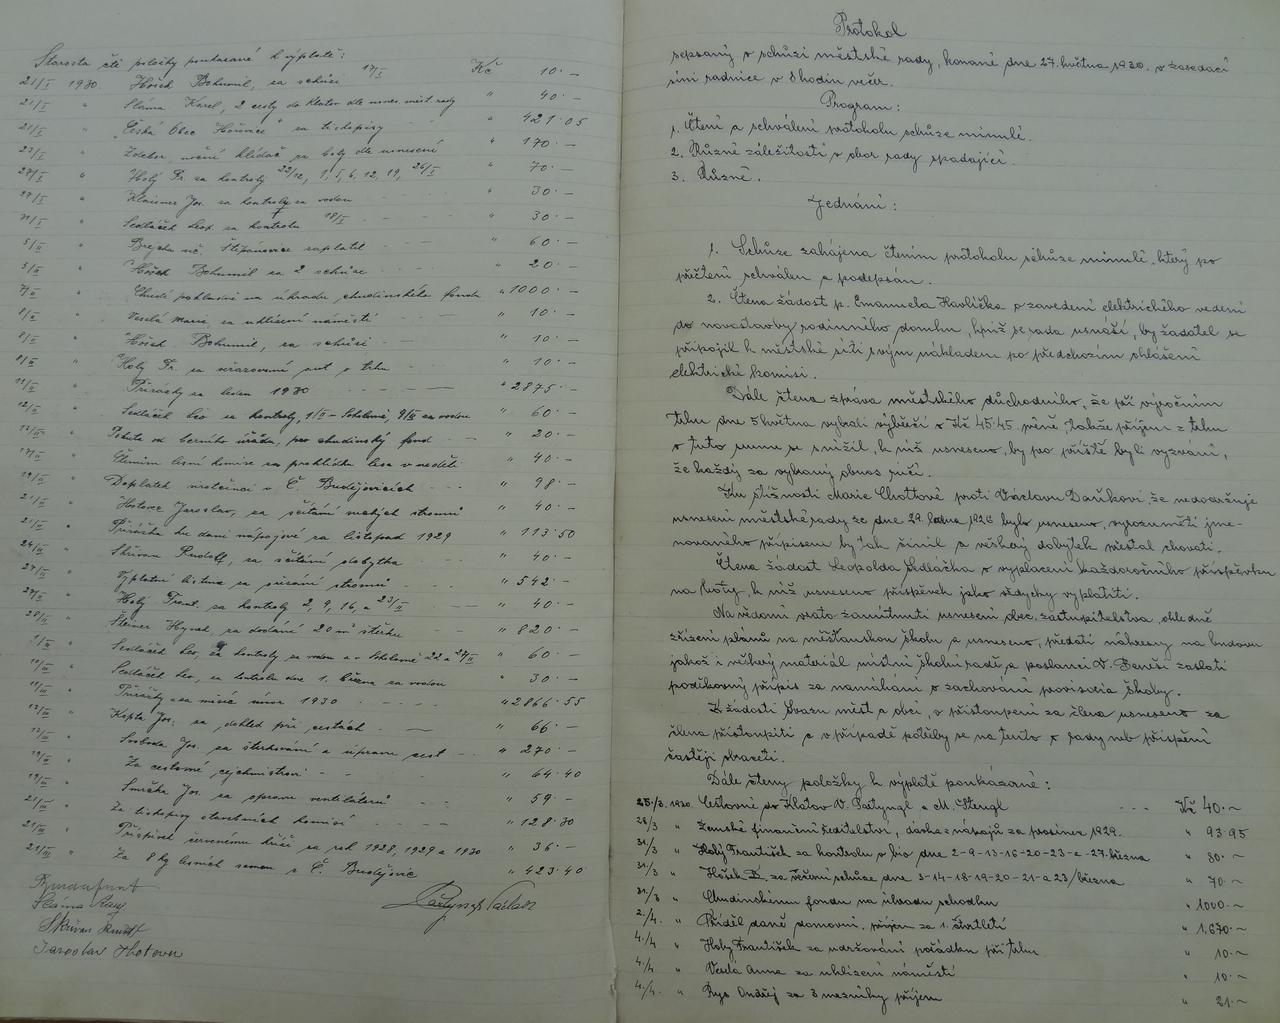 Starosta čte položky poukázané k výplatě:
21/I 1930. Hošek Bohumil, za schůzi 17/I Kč 10.—
21/I " Sláma Karel, 2 cesty do Klatov dle usnes. měst. rady " 40.—
21/I " "Česká Obec Hořovice" za tiskopisy " 421.05
23/I " Zdebor, noční hlídač za boty dle usnesení " 170.—
27/I " Holý Fr. za kontroly 29/12, 1, 5, 6, 12, 19, 26/I " 70.—
27/I " Klaisner Jos. za kontroly za vodou " 30.—
31/I " Sedláček Leop. za kontrolu 18/I " 30.—
5/II " Brejcha uč. Štěpánovice zaplatil " 60.—
5/II " Hošek Bohumil za 2 schůze " 20.—
7/II " Chudé pokladně na úhradu chudinského fondu " 1000.—
8/II " Veselá Marie za uklízení náměstí " 10.—
8/II " Hošek Bohumil, za schůzi " 10.—
8/II " Holý Fr. za o trhu " 10.—
11/II " Přirážky za leden 1930 " 2875.—
12/II " Sedláček Leo za kontroly, 1/II - Sokolovně, 9/II za vodou " 60.—
12/II " od berního úřadu, pro chudinský fond " 20.—
17/II " Členům lesní komise za prohlídku lesa v neděli " 40.—
19/II " Doplatek nemocnici v Č. Budějovicích " 98.—
21/II " Hotovec Jaroslav, za sčítání suchých stromů " 40.—
21/II " Přirážka ku dani nápojové za listopad 1929 " 113.50
24/II " Skřivan Rudolf, za sčítání dobytka " 40.—
27/II " Výplatní listina za sázení stromů " 542.—
27/II " Holý Frant. za kontroly 2, 9, 16, a 23/II " 40.—
28/II " Steiner Hynek, za dodání 20 m³ štěrku " 820.—
1/III " Sedláček Leo, za kontroly za vodou a v Sokolovně 22 a 24/II " 60.—
10/III " Sedláček Leo, za kontrolu dne 1. března za vodou " 30.—
11/III " Přirážky za měsíc únor 1930 " 2866.55
13/III " Kopta Jos. za dohled při cestách " 66.—
17/III " Svoboda Jos. za štěrkování a úpravu cest " 270.—
19/III " Za cestovné cejchmistrovi " 64.40
19/III " Smrčka Jos. za opravu ventilátorů " 59.—
21/III " Za tiskopisy stavebních komisí " 128.30
21/III " Příspěvek červenému kříži za rok 1928, 1929 a 1930 " 36.—
21/III " Za 8 kg lesních semen z Č. Budějovic " 423.40
Sláma Karel
Skřivan Rudolf
Jaroslav Hotovec
Partyngl Václav
Protokol
sepsaný o schůzi městské rady, konané dne 27. května 1930. v zasedací
síni radnice v 8 hodin večer.
Program:
1. Čtení a schválení protokolu schůze minulé.
2. Různé záležitosti v obor rady spadající.
3. Různé.
Jednání:
1. Schůze zahájena čtením protokolu schůze minulé, který po
přečtení schválen a podepsán.
2. Čtena žádost p. Emanuela Havlíčka o zavedení elektrického vedení
do novostavby rodinného domku, kníž se rada usnáší, by žadatel se
připojil k městské síti svým nákladem po předchozím ohlášení
elektrické komisi.
Dále čtena zpráva městského důchodního, že při výročním
trhu dne 5 května vybrali výběrčí o Kč 45.45 méně, takže příjem z trhu
o tuto sumu se snížil, k níž usneseno, by pro příště byli vyzváni,
že každý za vybraný obnos ručí.
Ku stížnosti Marie Chottové proti Václavu Daňkovi, že nedodržuje
usnesení městské rady ze dne 29. ledna 1926 bylo usneseno, vyrozuměti jme-
novaného přípisem by tak činil a veškerý dobytek přestal chovati.
Čtena žádost Leopolda Sedláčka o vyplacení každoročního příspěvku
na boty, k níž usneseno příspěvek jako vždycky vyplatiti.
Na vědomí vzato zamítnutí usnesení obec. zastupitelstva, ohledně
zřízení plánů na měšťanskou školu a usneseno, předati nákresy na budovu
jakož i veškerý materiál místní školní radě, a poslanci V. Beneši zaslati
poděkovný přípis za namáhání o zachování provisoria školy.
K žádosti Svazu měst a obcí, o přistoupení za člena usneseno za
člena přistoupiti a v případě potřeby se na tento o rady neb přispění
častěji obraceti.
Dále čteny položky k výplatě poukázané:
25./3. 1930. Cestovní do Klatov V. Partyngl a M. Stengl Kč 40.~
28/3 " Zemské finanční ředitelství, dávka z nápojů za prosinec 1929. " 93.95
31./3 " Holý František za kontrolu v bio dne 2-9-13-16-20-23-a-27. března " 80.~
31./3 " Hošek B. za řízení schůze dne 3-14-18-19-20-21-a 23/března " 70.~
31./3 " Chudinskému fondu na úhradu schodku " 1000.~
2./4. " Příděl daně domovní, příjem za 1. čtvrtletí " 1.670.~
4./4 " Holý František za udržování pořádku při trhu " 10.~
4./4 " Veselá Anna za uklízení náměstí " 10.~
4./4. " Rys Ondřej za 3 mazníky příjem " 21.~